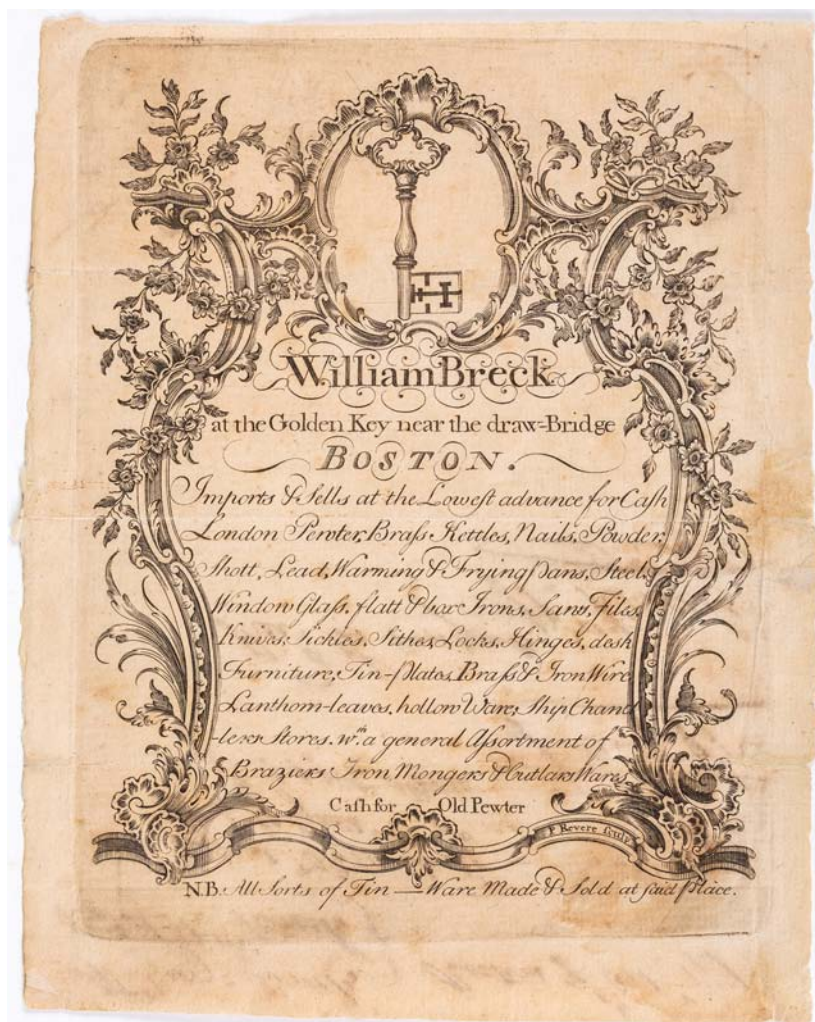 William Breck
at the Golden Key near the draw-Bridge
BOSTON.
Imports & Sells at the Lowest advance for Caſh
London Pewter, Braſs Kettles, Nails, Powder,
Shott, Lead, Warming & Frying pans, Steel,
Window Glaſs, flatt & box Irons, Saws, Files,
Knives, Sickles, Sithes, Locks, Hinges, desk
Furniture, Tin-plates, Braſs & Iron Wire
Lanthorn-leaves, hollow Ware, Ship Chand
-lers Stores. wth. a general Aſsortment of
Braziers Iron Mongers & Cutlars Wares
Caſh for Old Pewter
P Revere sculp
N.B. All Sorts of Tin — Ware Made & Sold at ſaid place.